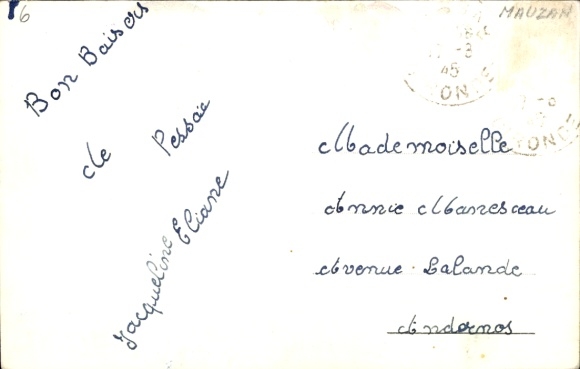 6
MAUZAN
Bon Baisers
de Pessac
Jacqueline Eliane
-8
45
Mademoiselle
Annie Manesceau
Avenue Lalande
Andernos